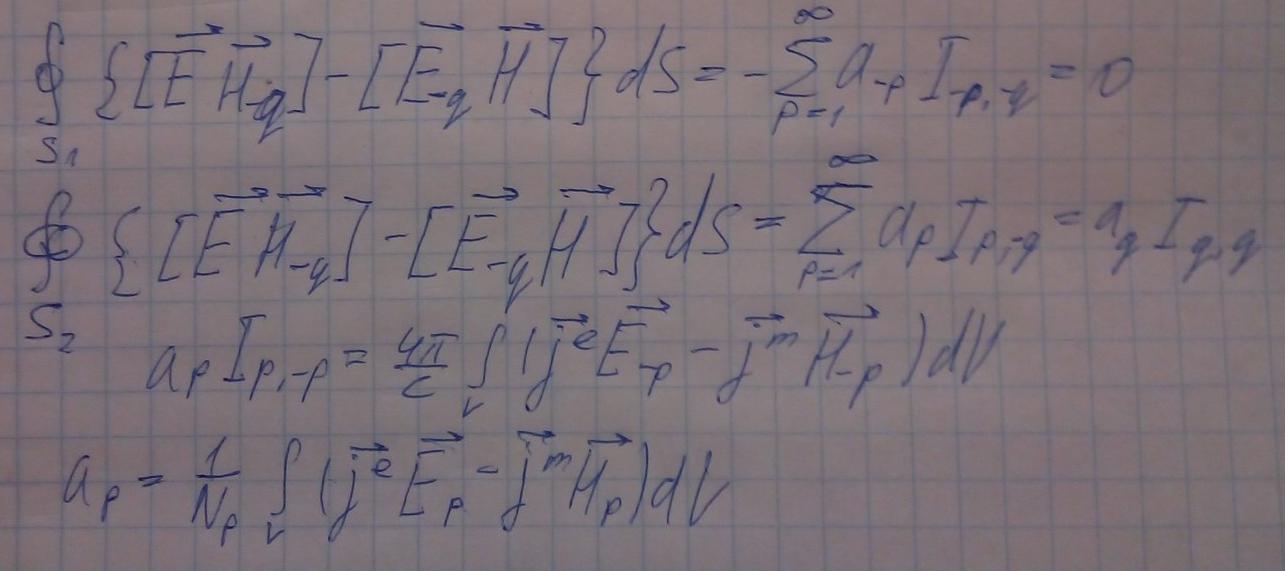 ∮_{S₁} {[E⃗ H⃗_{-q}] - [E⃗_{-q} H⃗]} dS = -∑_{p=1}^{∞} a_{-p} I_{-p,-q} = 0
∮_{S₂} {[E⃗ H⃗_{-q}] - [E⃗_{-q} H⃗]} dS = ∑_{p=1}^{∞} a_p I_{p,-q} = a_q I_{q,q}
a_p I_{p,-p} = 4π/c ∫_v (j⃗^e E⃗_{-p} - j⃗^m H⃗_{-p}) dV
a_p = 1/N_p ∫_v (j⃗^e E⃗_p - j⃗^m H⃗_p) dV